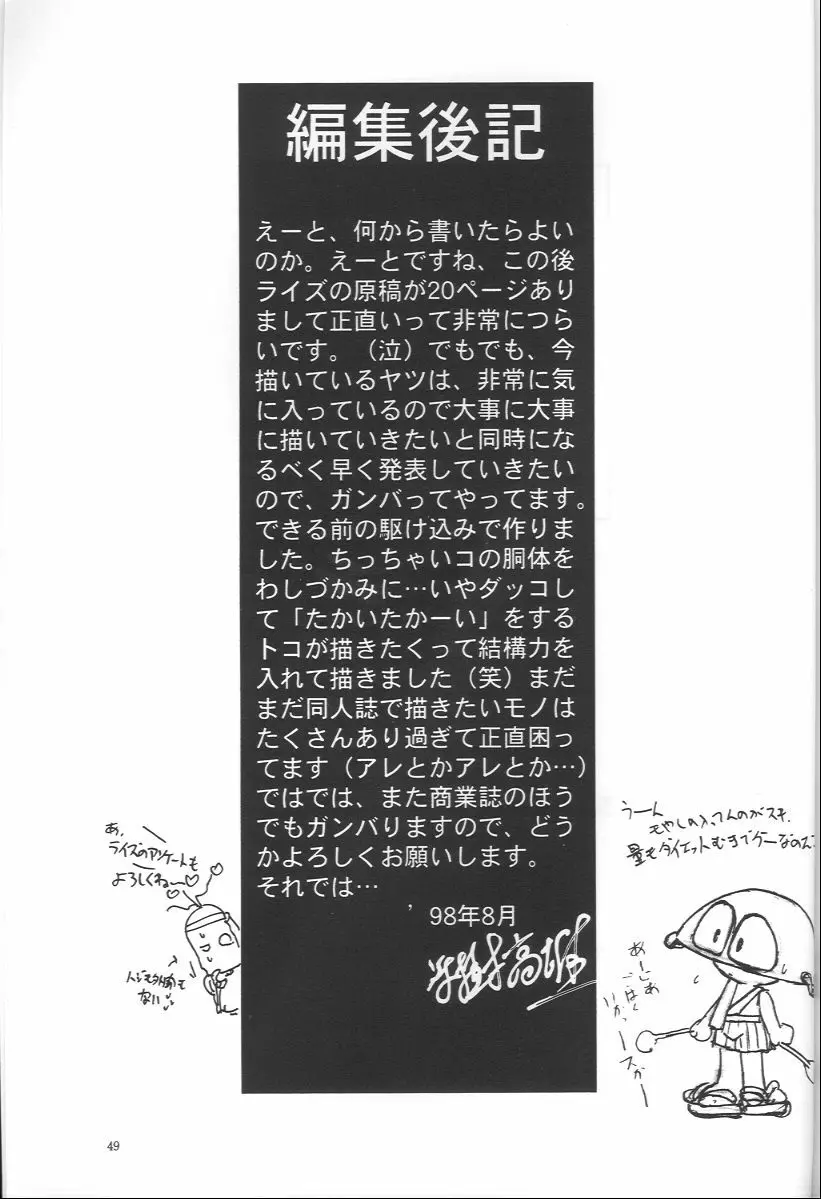 編集後記
えーと、何から書いたらよい
のか。えーとですね、この後
ライズの原稿が20ページあり
まして正直いって非常につら
いです。（泣）でもでも、今
描いているヤツは、非常に気
に入っているので大事に大事
に描いていきたいと同時にな
るべく早く発表していきたい
ので、ガンバってやってます。
できる前の駆け込みで作りま
した。ちっちゃいコの胴体を
わしづかみに…いやダッコし
て「たかいたかーい」をする
トコが描きたくって結構力を
入れて描きました（笑）まだ
まだ同人誌で描きたいモノは
たくさんあり過ぎて正直困っ
てます（アレとかアレとか…）
ではでは、また商業誌のほう
でもガンバりますので、どう
かよろしくお願いします。
それでは…
’98年8月
あ、
ライズのアンケートも
よろしくねー♡
ない
うーん
量もダイエットむきでグーなのだ
49